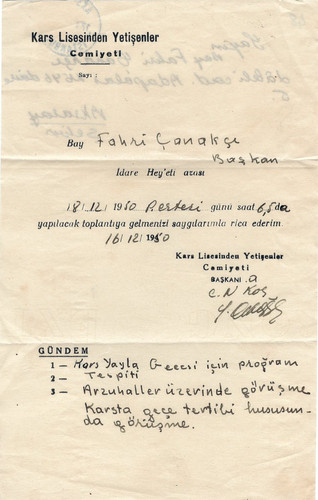 Kars Lisesinden Yetişenler
Cemiyeti
Sayı :
Bay Fahri Çanakçı
Başkan
İdare Hey'eti azası
18/12/1950 P.ertesi günü saat 6,5 da
yapılacak toplantıya gelmenizi saygılarımla rica ederim
16/12 1950
Kars Lisesinden Yetişenler
Cemiyeti
BAŞKANI .a
C. N Koş
GÜNDEM
1 — Kars Yayla Gecesi için proğram
2 — Tespiti
3 — Arzuhaller üzerinde görüşme
Karsta gece tertibi hususun-
da görüşme.